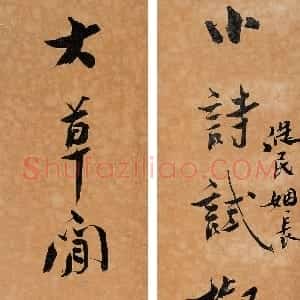 小詩試
大草閒
俍民姻長
Shufaziliao.com